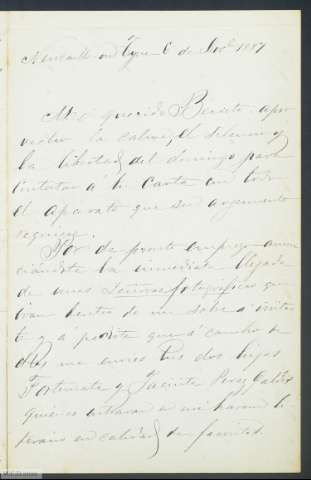 Newcastle on Tyne 6 de Nov.e 1887
Mi querido Benito: apro
vecho la calma, el silencio y
la libertad del domingo para
contestar á tu carta con todo
el aparato que su argumento
requiere.
Por de pronto empiezo anun
ciándote la inmediata llegada
de unas Señoras fotografías que
irán dentro de un sobre á visitar
te y á pedirte que á cambio de
ellas me envies tus dos hijas
Fortunata y Jacinta
quienes entrarán en mi harem li
terario en calidad de favoritas.